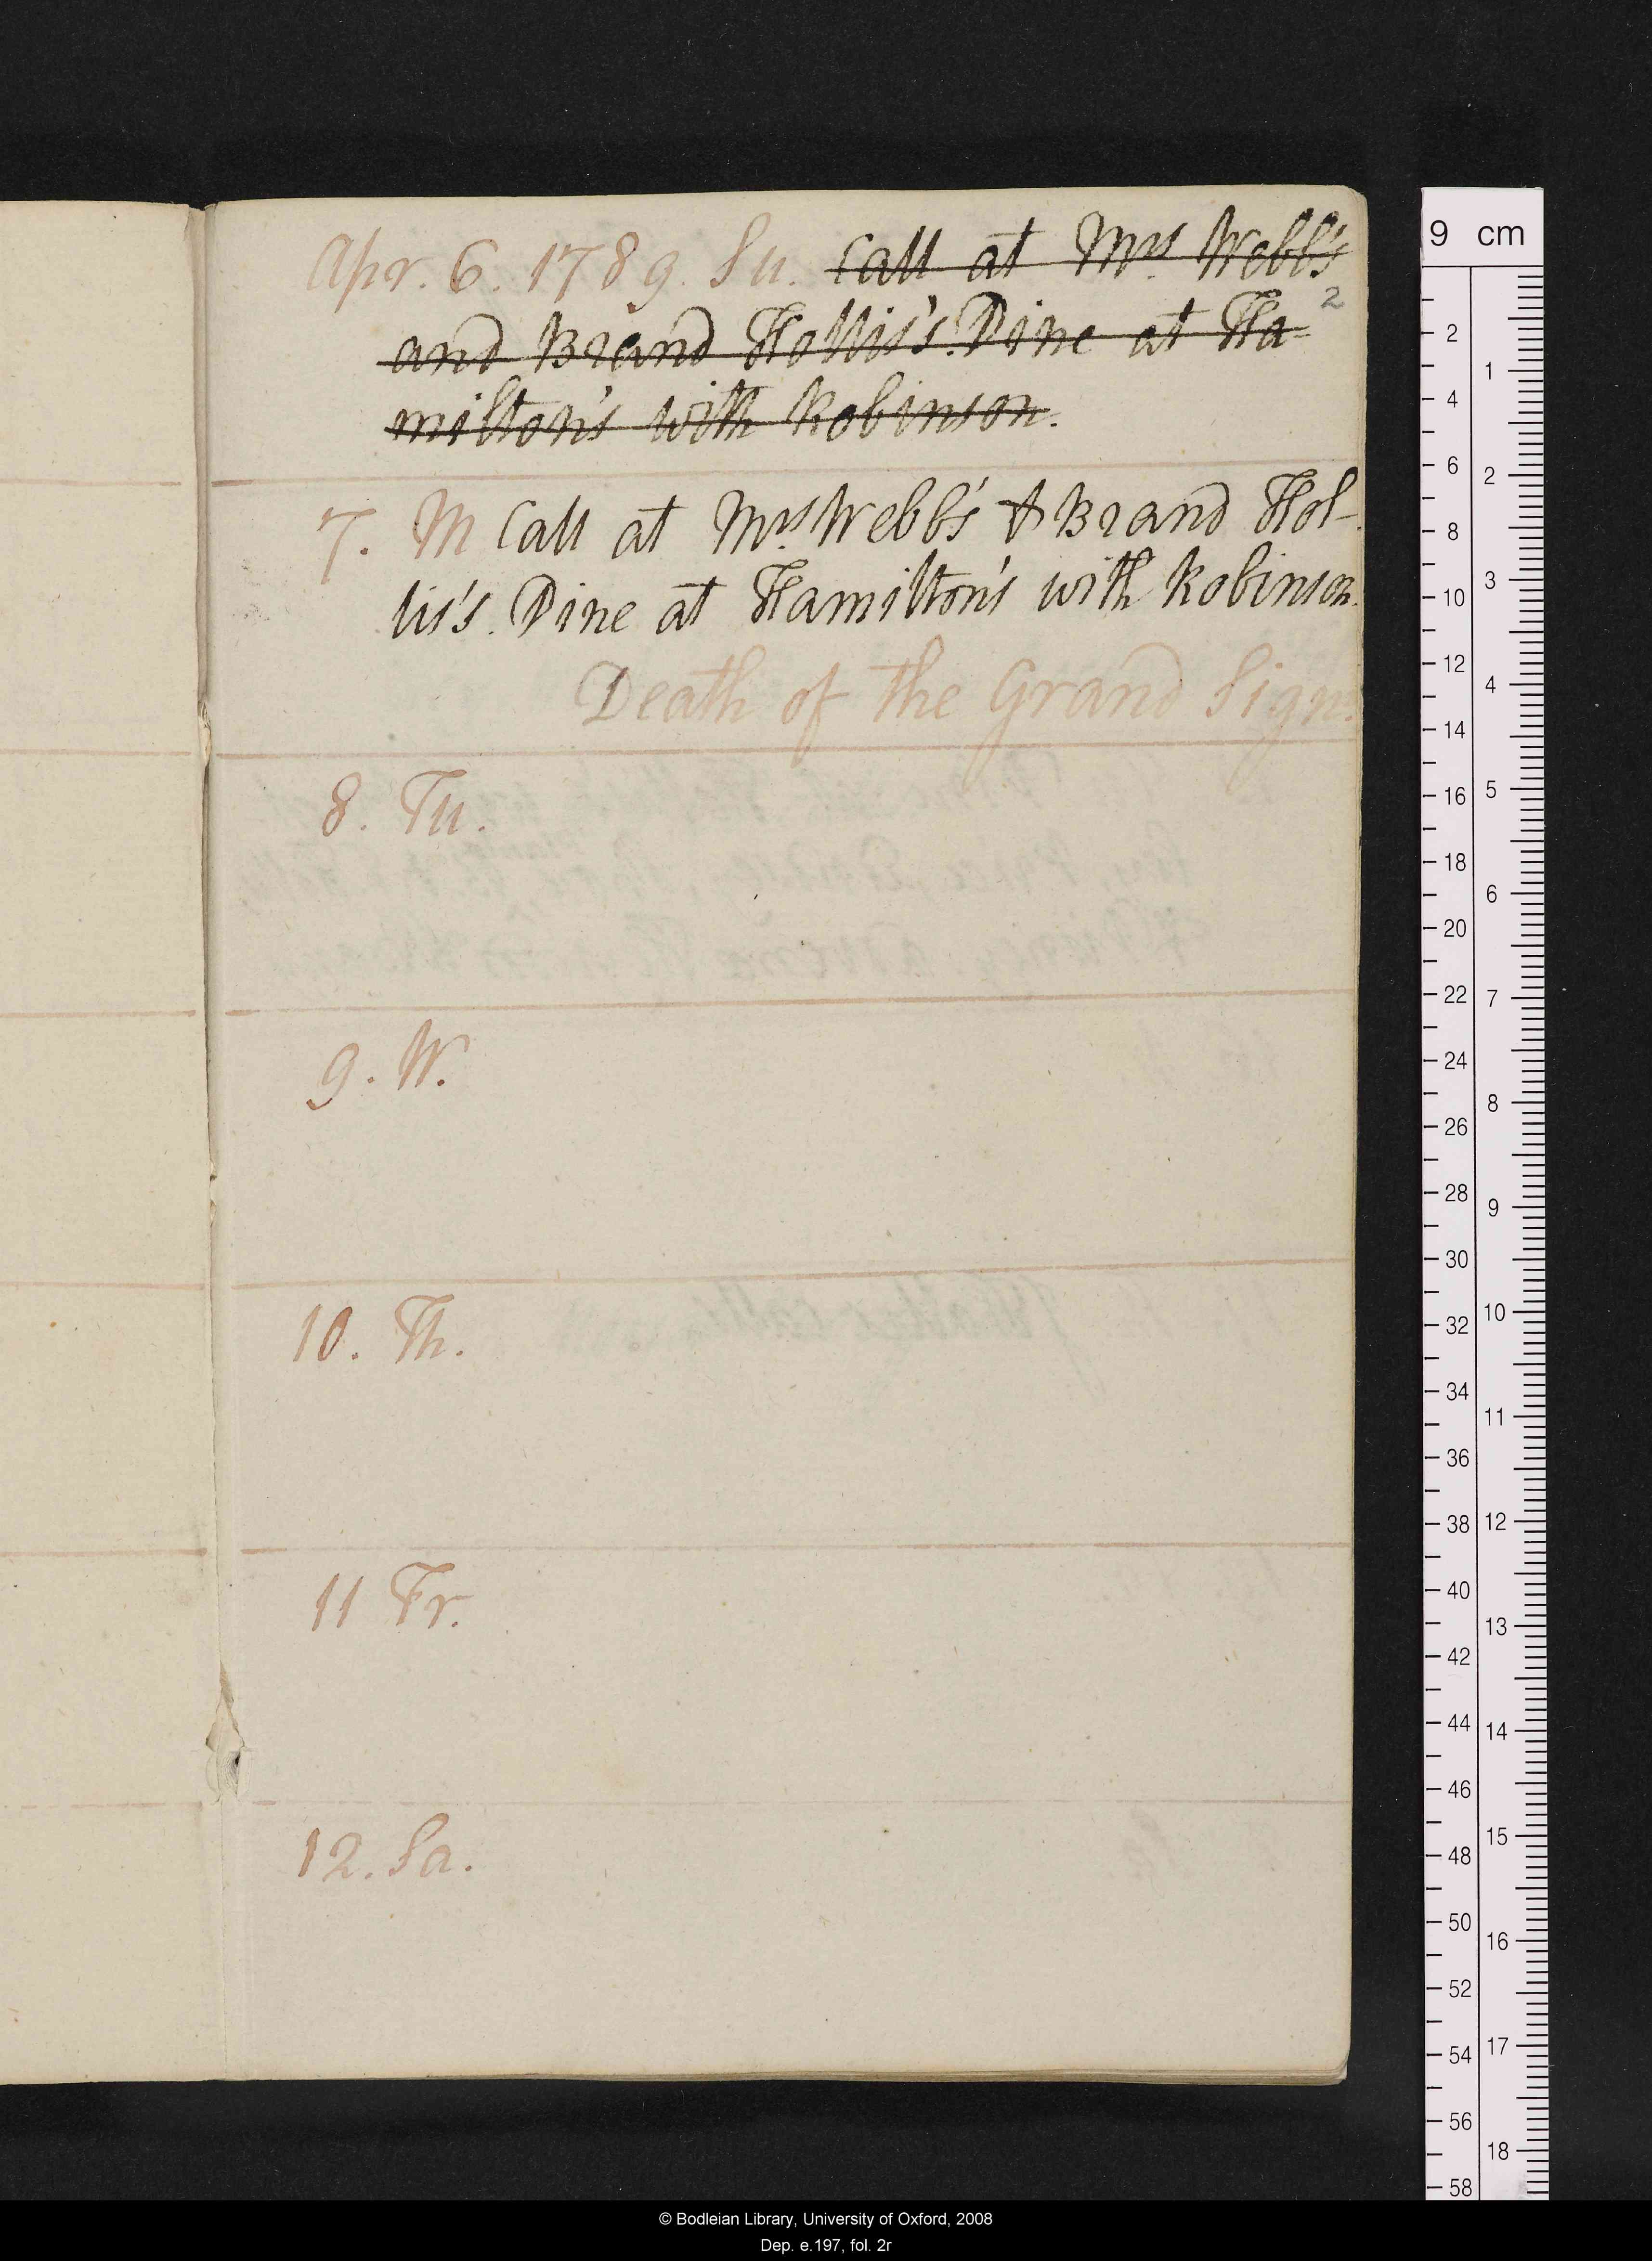 Apr. 6. 1789. Su. Call at Mrs. Webb's
2
and Brand Hollis's. Dine at Ha-
milton's with Robinson.
7. M Call at Mrs. Webb's & Brand Hol-
lis's. Dine at Hamilton's with Robinson.
Death of the Grand Sign.
8. Tu.
9. W.
10. Th.
11 Fr.
12. Sa.
9 cm
2
4
6
8
10
12
14
16
18
20
22
24
26
28
30
32
34
36
38
40
42
44
46
48
50
52
54
56
58
1
2
3
4
5
6
7
8
9
10
11
12
13
14
15
16
17
18
© Bodleian Library, University of Oxford, 2008
Dep. e.197, fol. 2r